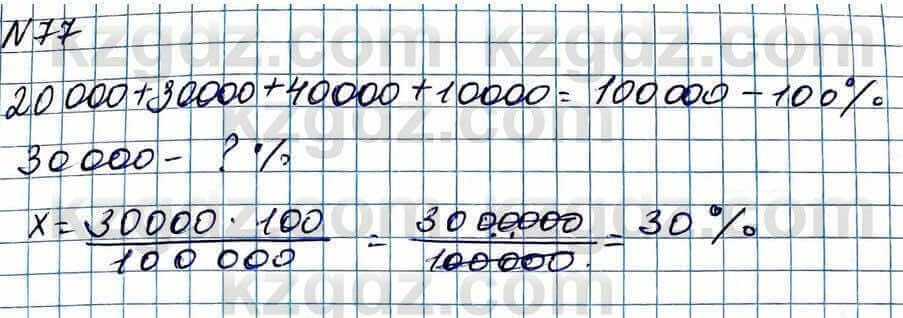 kzgdz.com kzgdz.com
N 77
20 000+30000+40000+10000= 100 000 - 100%
kzgdz.com
30 000 - ? %
x = 30000 · 100 / 100 000 = 3000000 / 100000 = 30 %
kzgdz.com kzgdz.com
kzgdz.com